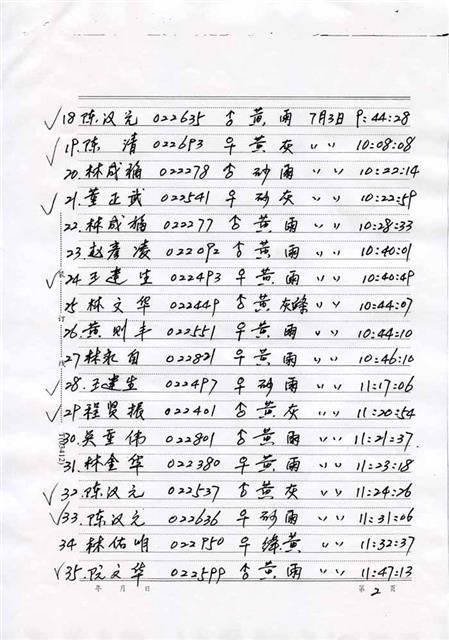 ✓ 18. 陈汉元 022635 ♂ 黄 雨 7月3日 9:44:28
✓ 19. 陈 清 022693 ♀ 黄 灰 〃 〃 10:08:08
20. 林成福 022278 ♂ 砂 雨 〃 〃 10:22:14
✓ 21. 董正武 022541 ♀ 砂 灰 〃 〃 10:22:59
22. 林成福 022277 ♂ 黄 雨 〃 〃 10:28:33
23. 赵彦凌 022092 ♀ 黄 雨 〃 〃 10:40:01
✓ 24. 王建生 022493 ♀ 黄 雨 〃 〃 10:40:49
25. 林文华 022449 ♂ 黄 灰绛 〃 〃 10:44:07
26. 黄则丰 022551 ♀ 黄 雨 〃 〃 10:44:10
27. 林和自 022821 ♀ 黄 雨 〃 〃 10:46:10
✓ 28. 王建生 022497 ♀ 砂 雨 〃 〃 11:17:06
✓ 29. 程贤振 022401 ♂ 黄 灰 〃 〃 11:20:54
30. 吴重伟 022801 ♂ 黄 雨 〃 〃 11:21:37
31. 林金华 022380 ♀ 黄 雨 〃 〃 11:23:18
✓ 32. 陈汉元 022537 ♂ 黄 灰 〃 〃 11:24:26
✓ 33. 陈汉元 022636 ♀ 砂 雨 〃 〃 11:31:06
34. 林佑明 022950 ♀ 绛 黄 〃 〃 11:32:37
✓ 35. 阮文华 022599 ♂ 黄 雨 〃 〃 11:47:13
年 月 日 第 2 页
装 订 线